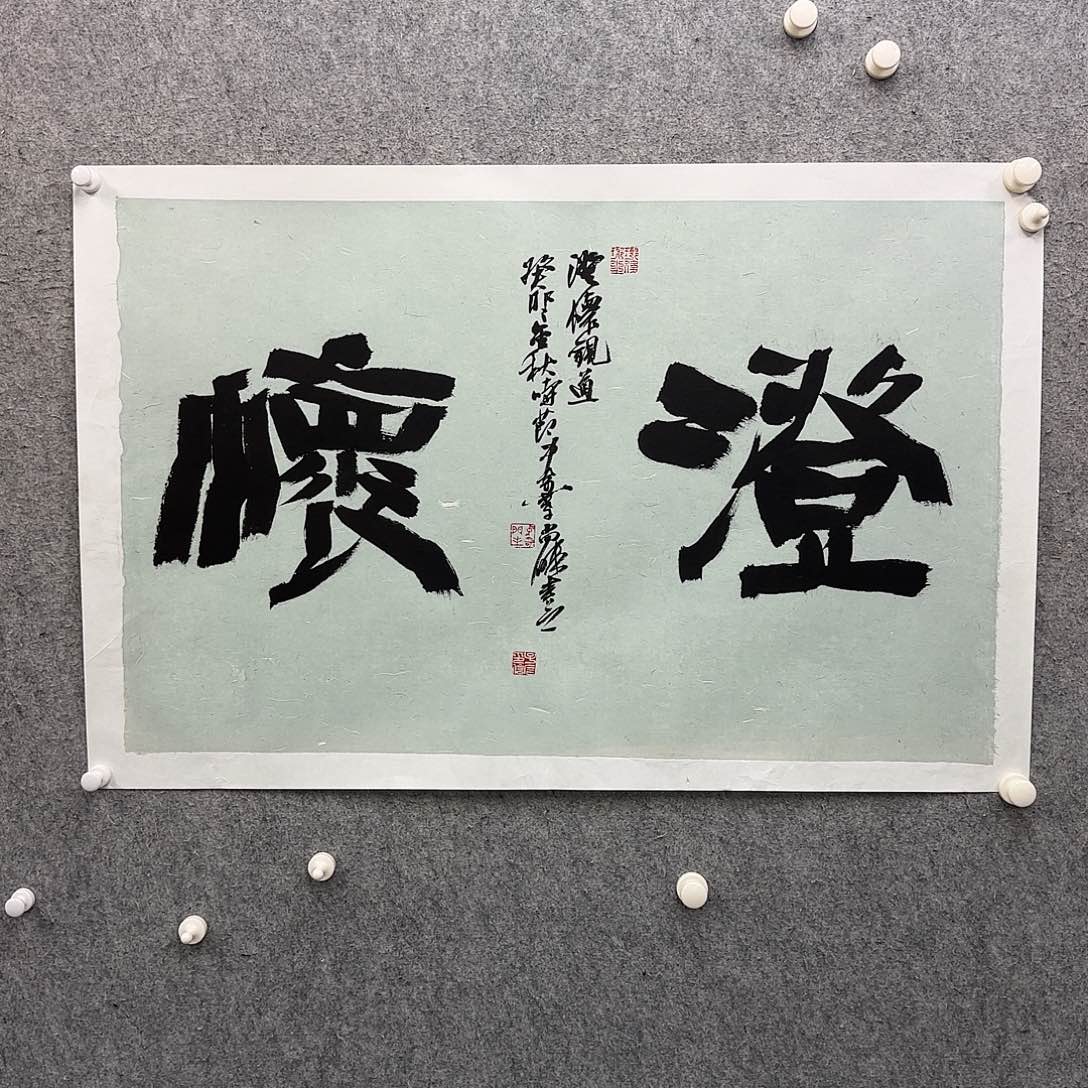 澄懷
澄懷觀道
癸卯金秋時節
尚
書之